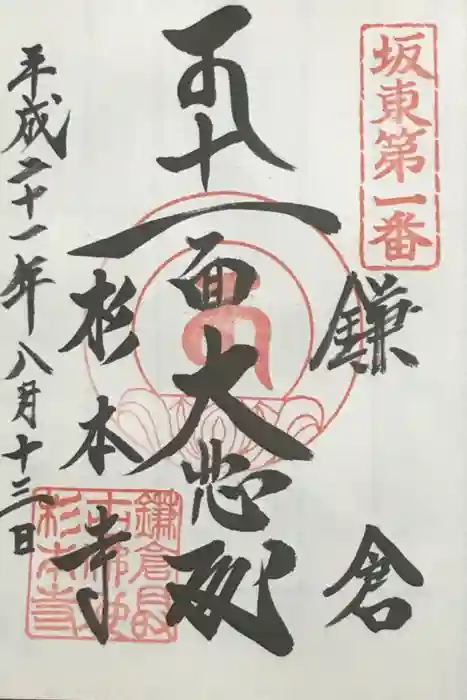 坂東第一番
鎌倉
十一面大悲殿
杉本寺
平成二十一年八月十三日
鎌倉最
杉本寺